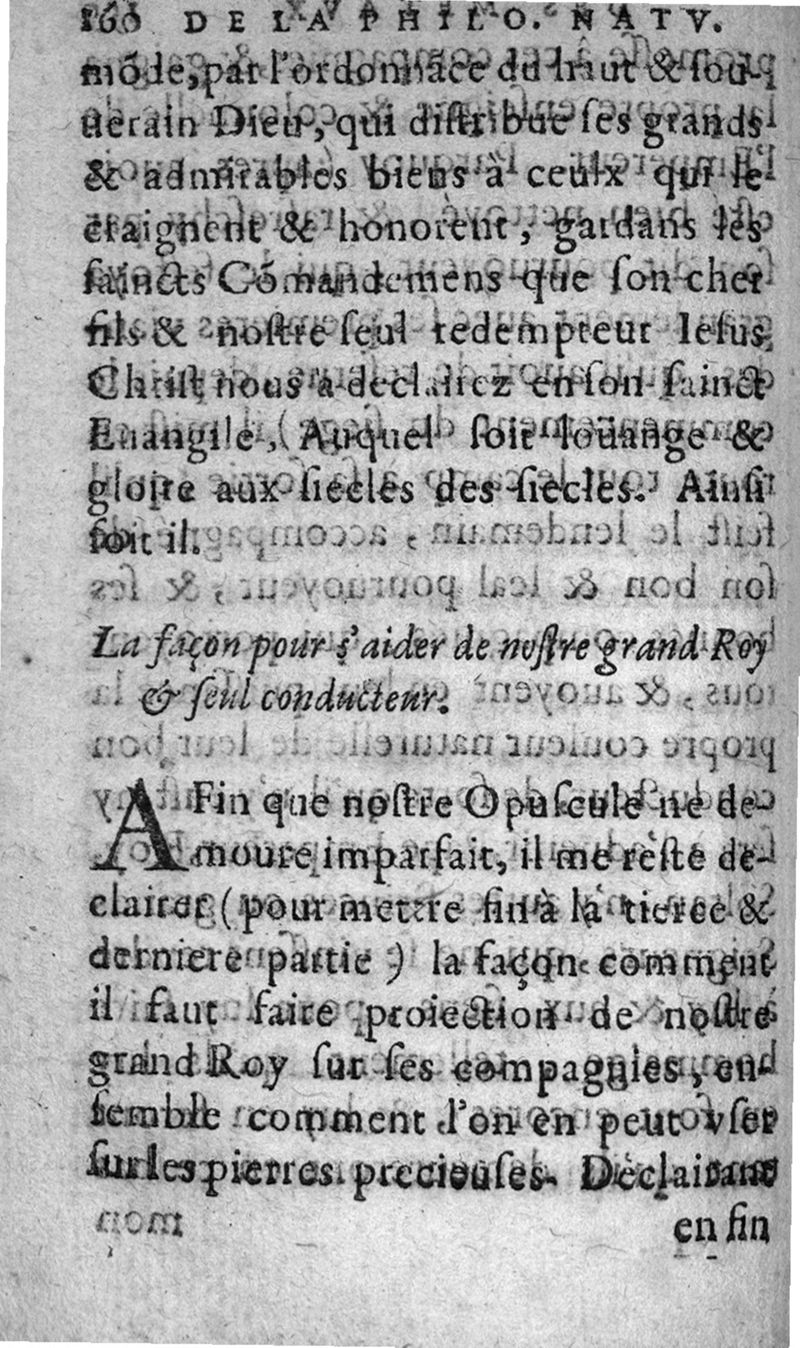 160 DE LA PHILO. NATV.
mōde, par l'ordonnāce du haut & sou-
uerain Dieu, qui distribue ses grands
& admirables biens à ceulx qui le
craignent & honorent, gardans les
saincts Cōmandemens que son cher
fils & nostre seul redempteur Iesus
Christ nous a declairez en son sainct
Euangile, (Auquel soit loüange &
gloire aux siecles des siecles. Ainsi
soit il.
La façon pour s'aider de nostre grand Roy
& seul conducteur.
AFin que nostre Opuscule ne de-
moure imparfait, il me reste de-
clairer (pour mettre fin à la tierce &
derniere partie) la façon comment
il faut faire proiection de nostre
grand Roy sur ses compagnies, en-
semble comment l'on en peut vser
sur les pierres precieuses. Declairant
en fin